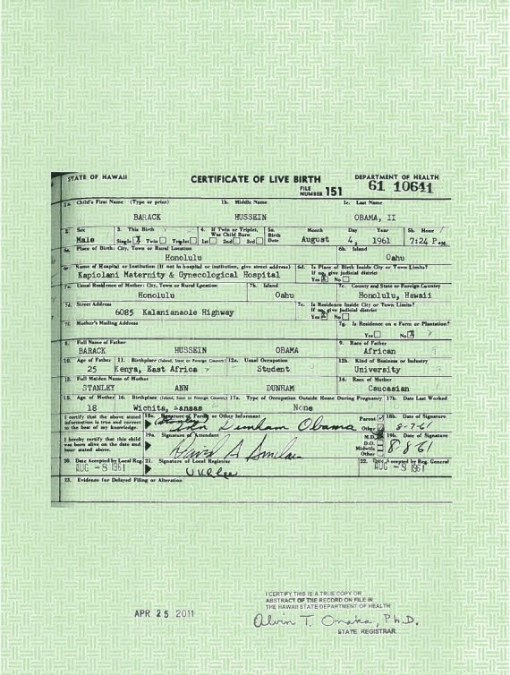 STATE OF HAWAII CERTIFICATE OF LIVE BIRTH DEPARTMENT OF HEALTH
FILE NUMBER 151 61 10641
1a. Child's First Name (Type or print) 1b. Middle Name 1c. Last Name
BARACK HUSSEIN OBAMA, II
2. Sex 3. This Birth 4. If Twin or Triplet, Was Child Born 5a. Birth Date Month Day Year 5b. Hour
Male Single Twin Triplet 1st 2nd 3rd August 4, 1961 7:24 P.M.
6a. Place of Birth: City, Town or Rural Location 6b. Island
Honolulu Oahu
6c. Name of Hospital or Institution (If not in hospital or institution, give street address) 6d. Is Place of Birth Inside City or Town Limits? If no, give judicial district
Kapiolani Maternity & Gynecological Hospital Yes No
7a. Usual Residence of Mother: City, Town or Rural Location 7b. Island 7c. County and State or Foreign Country
Honolulu Oahu Honolulu, Hawaii
7d. Street Address 7e. Is Residence Inside City or Town Limits? If no, give judicial district
6085 Kalanianaole Highway Yes No
7f. Mother's Mailing Address 7g. Is Residence on a Farm or Plantation?
Yes No
8. Full Name of Father 9. Race of Father
BARACK HUSSEIN OBAMA African
10. Age of Father 11. Birthplace (Island, State or Foreign Country) 12a. Usual Occupation 12b. Kind of Business or Industry
25 Kenya, East Africa Student University
13. Full Maiden Name of Mother 14. Race of Mother
STANLEY ANN DUNHAM Caucasian
15. Age of Mother 16. Birthplace (Island, State or Foreign Country) 17a. Type of Occupation Outside Home During Pregnancy 17b. Date Last Worked
18 Wichita, Kansas None
I certify that the above stated information is true and correct to the best of my knowledge. 18a. Signature of Parent or Other Informant Parent Other 18b. Date of Signature
Ann Dunham Obama 8-7-61
I hereby certify that this child was born alive on the date and hour stated above. 19a. Signature of Attendant M.D. D.O. Midwife Other 19b. Date of Signature
David A Sinclair 8-8-61
20. Date Accepted by Local Reg. 21. Signature of Local Registrar 22. Date Accepted by Reg. General
AUG -8 1961 U K L Lee AUG -8 1961
23. Evidence for Delayed Filing or Alteration
APR 25 2011
I CERTIFY THIS IS A TRUE COPY OR
ABSTRACT OF THE RECORD ON FILE IN
THE HAWAII STATE DEPARTMENT OF HEALTH
Alvin T. Onaka, Ph.D.
STATE REGISTRAR